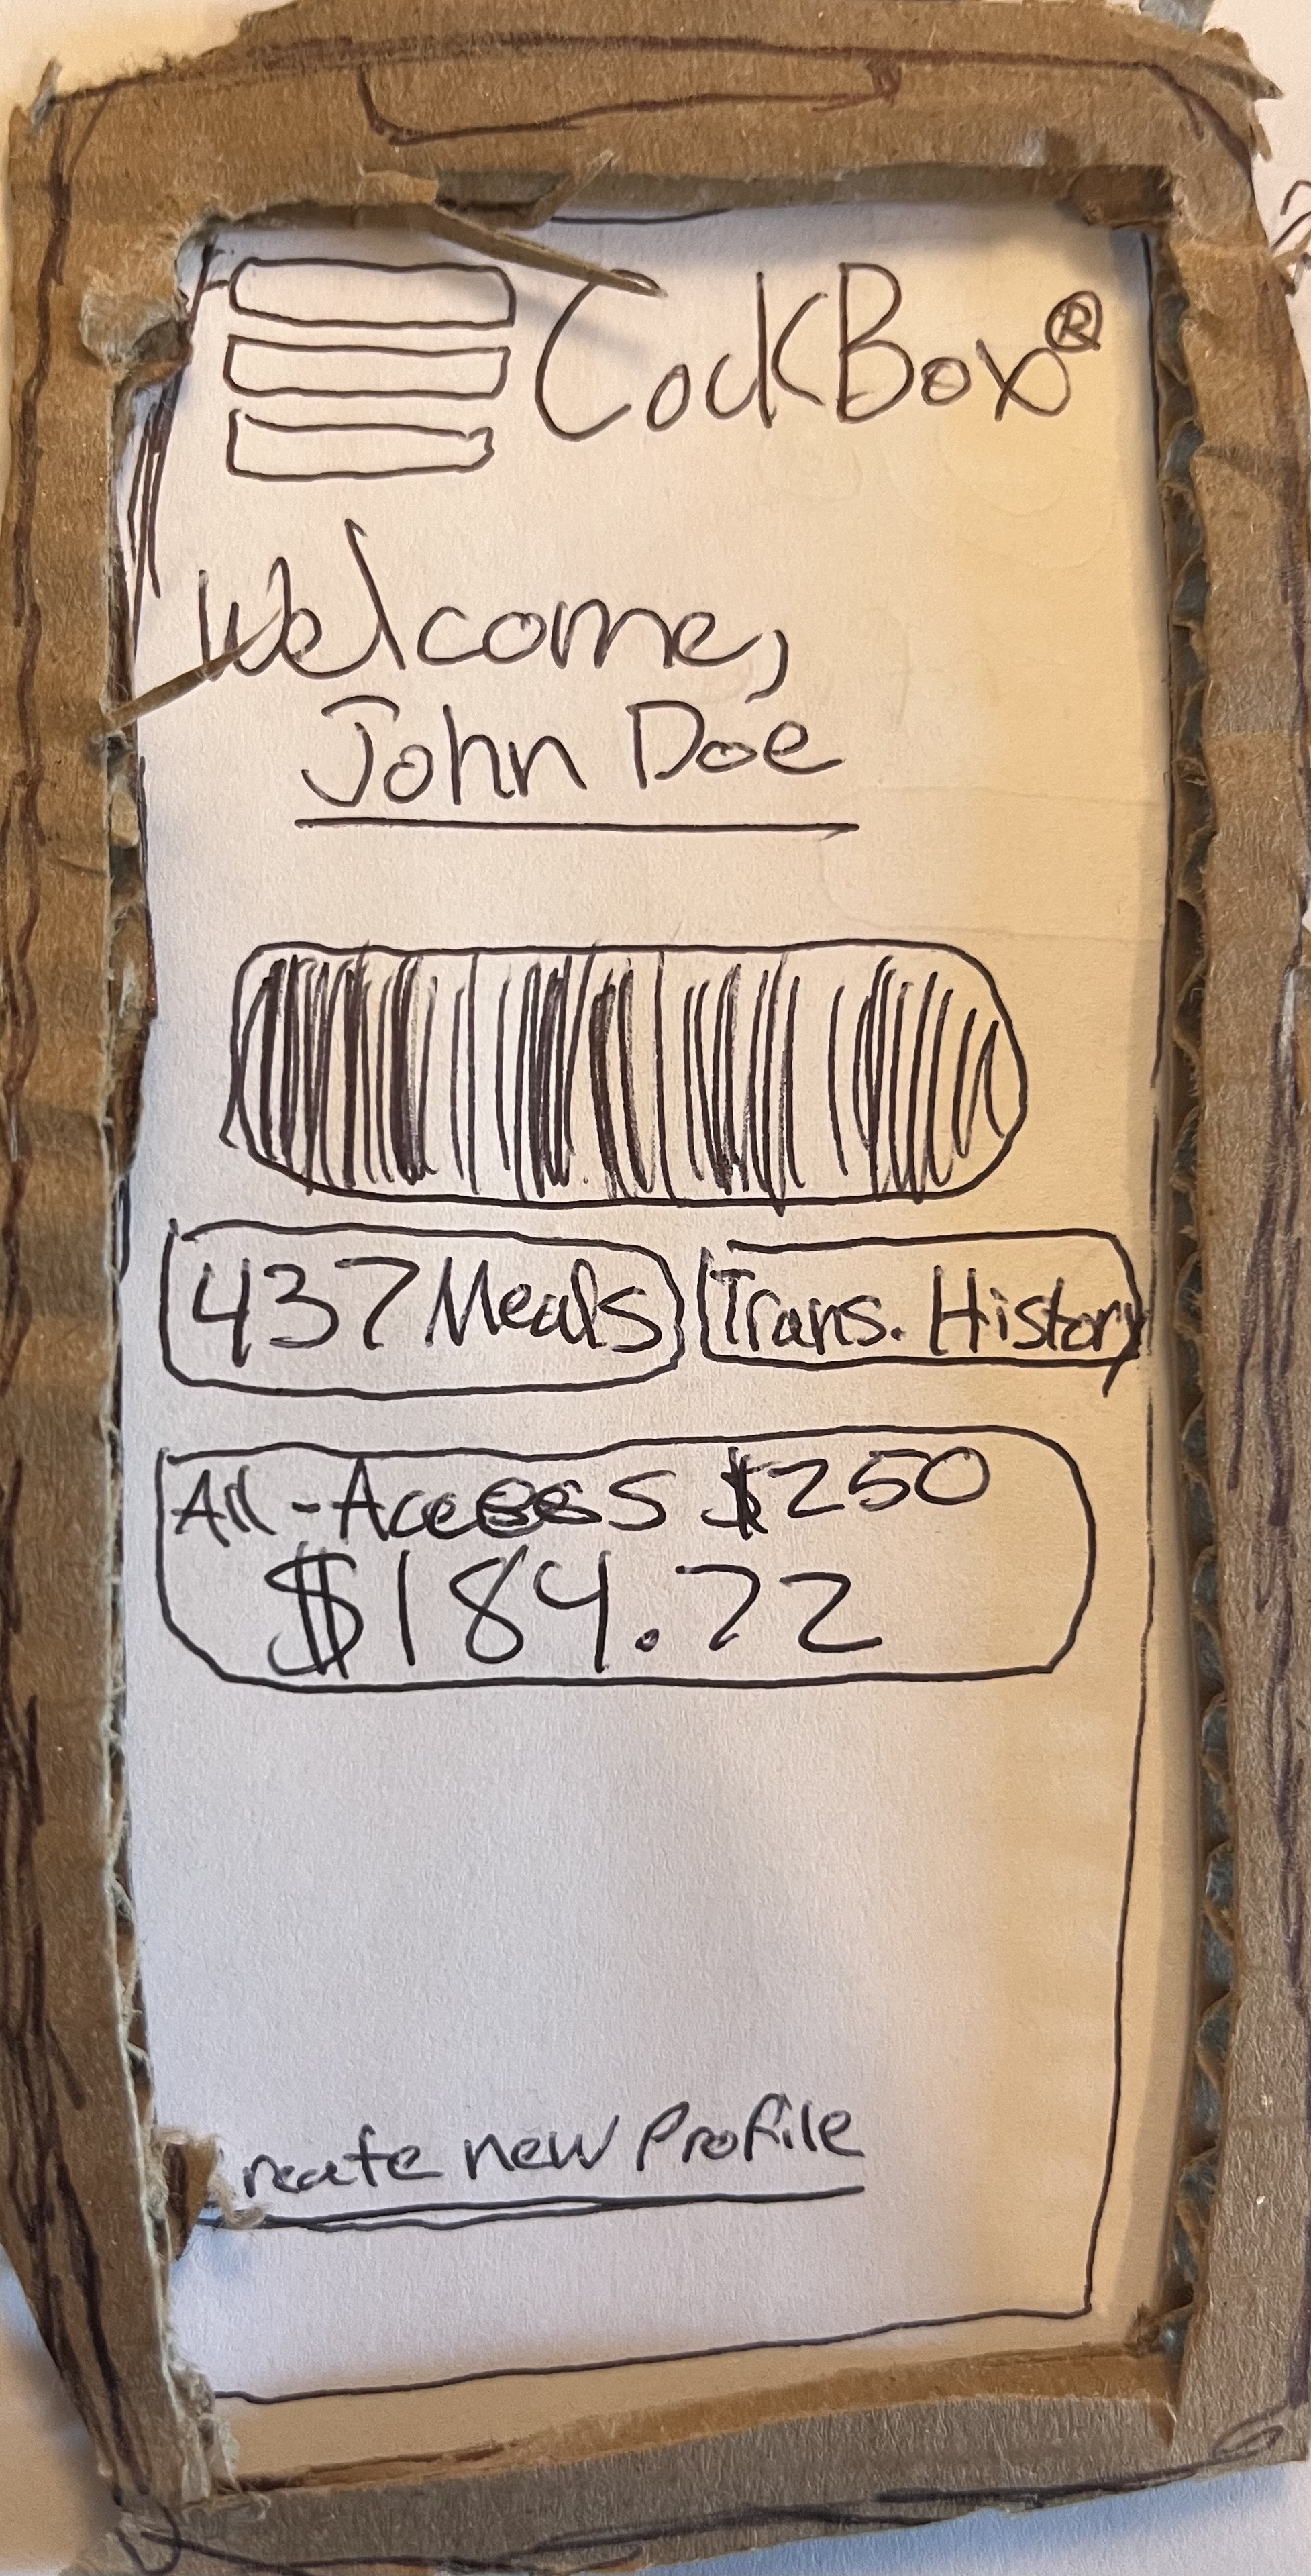 CockBox®
Welcome,
John Doe
437 Meals
Trans. History
All-Access $250
$184.72
reate new Profile